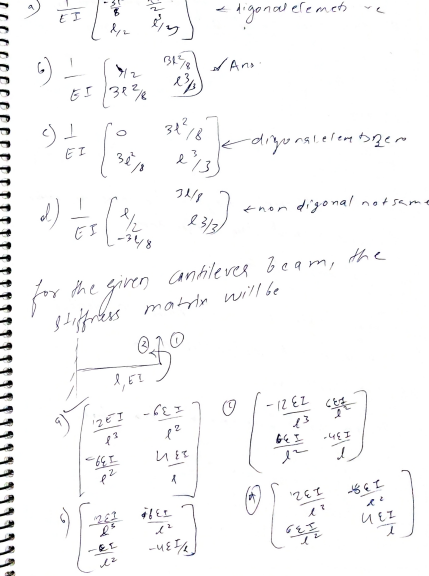 a) 1/EI [ l/2 l³/3 ] ← digonal elemets -ve
b) 1/EI [ l/2 3l²/8 3l²/8 l³/3 ] ✓ Ans
c) 1/EI [ 0 3l²/8 3l²/8 l³/3 ] ← digonal elemets Zero
d) 1/EI [ l/2 3l/8 -3l/8 l3/3 ] ← non digonal not same
for the given cantilever beam, the
stiffness matrix will be
② ①
l, EI
a) ✓ [ 12EI/l³ -6EI/l² -6EI/l² 4EI/l ]
c) [ -12EI/l³ 6EI/l² 6EI/l² -4EI/l ]
b) [ 12EI/l³ 6EI/l² -4EI/l ]
d) [ 12EI/l³ -6EI/l² 6EI/l² 4EI/l ]